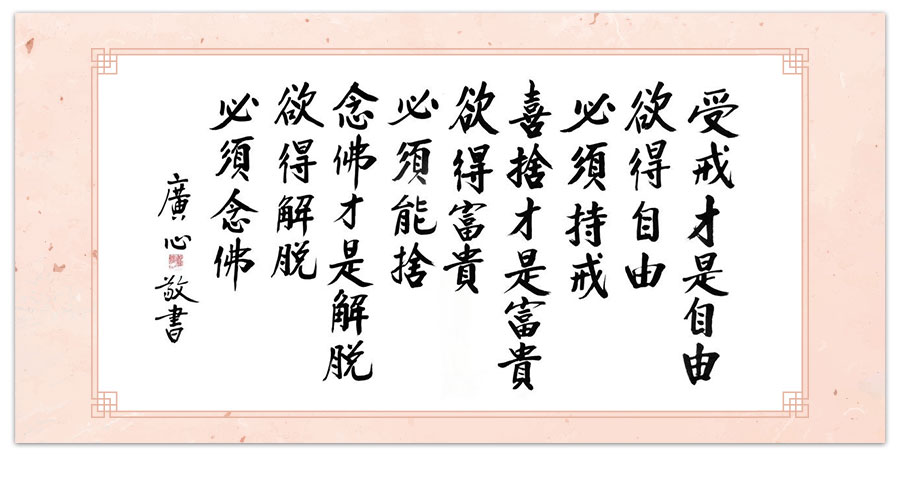 受戒才是自由
欲得自由
必須持戒
喜捨才是富貴
欲得富貴
必須能捨
念佛才是解脫
欲得解脫
必須念佛
廣心敬書